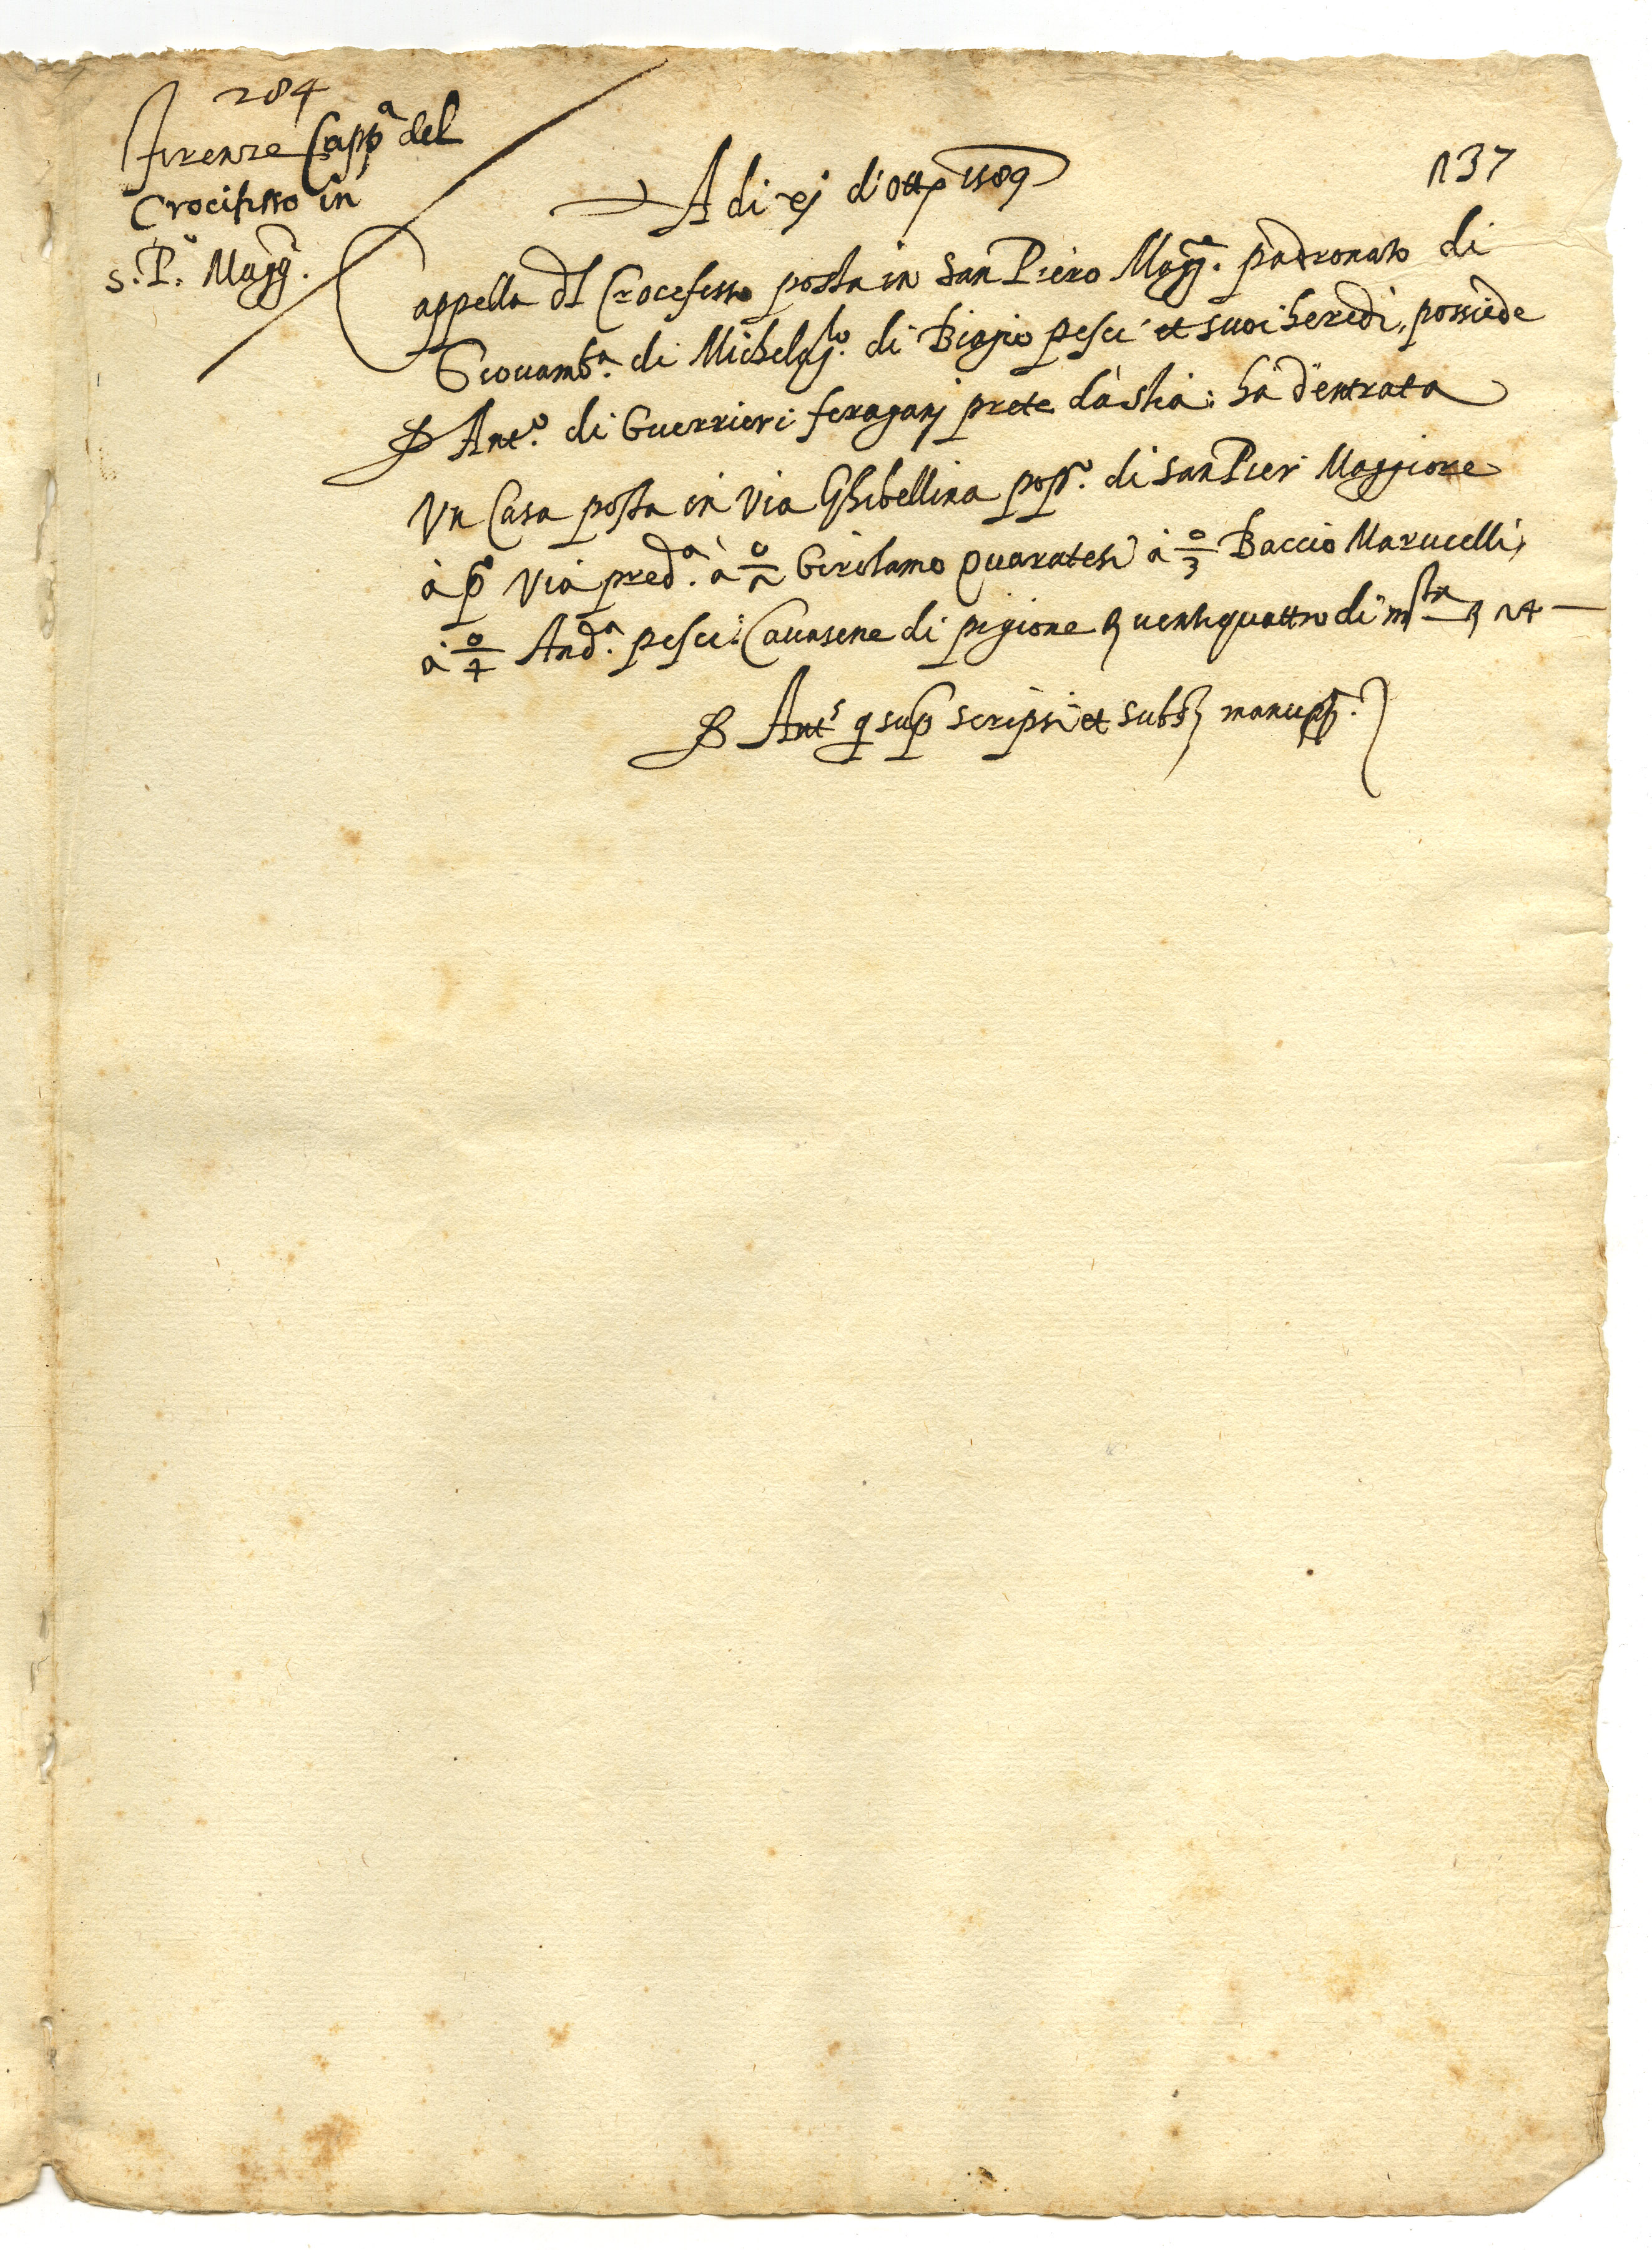 284
firenze Capp.a del
Crocifisso in
s. P.o Magg.
A di xj d'ottb 1589
137
Cappella dl Crocefisso posta in San Piero Magg.e padronato di
Giouamb.a di Michelag.lo di Biagio pesci et suoi heredi, possiede
Ant.o di Guerrieri feraganj prete da stia: ha d'entrata
Vn Casa posta in Via Ghibellina pop.o di San Pier Maggiore
à p.o Via pred.a à 2/o Girolamo Quaratesi à 3/o Baccio Marucelli,
à 4/o And.a pesci: Cauasene di pigione ▽ uentiquattro di m.ta ▽ 24 —
Ant.s q sup scripsi et subsj manupp.